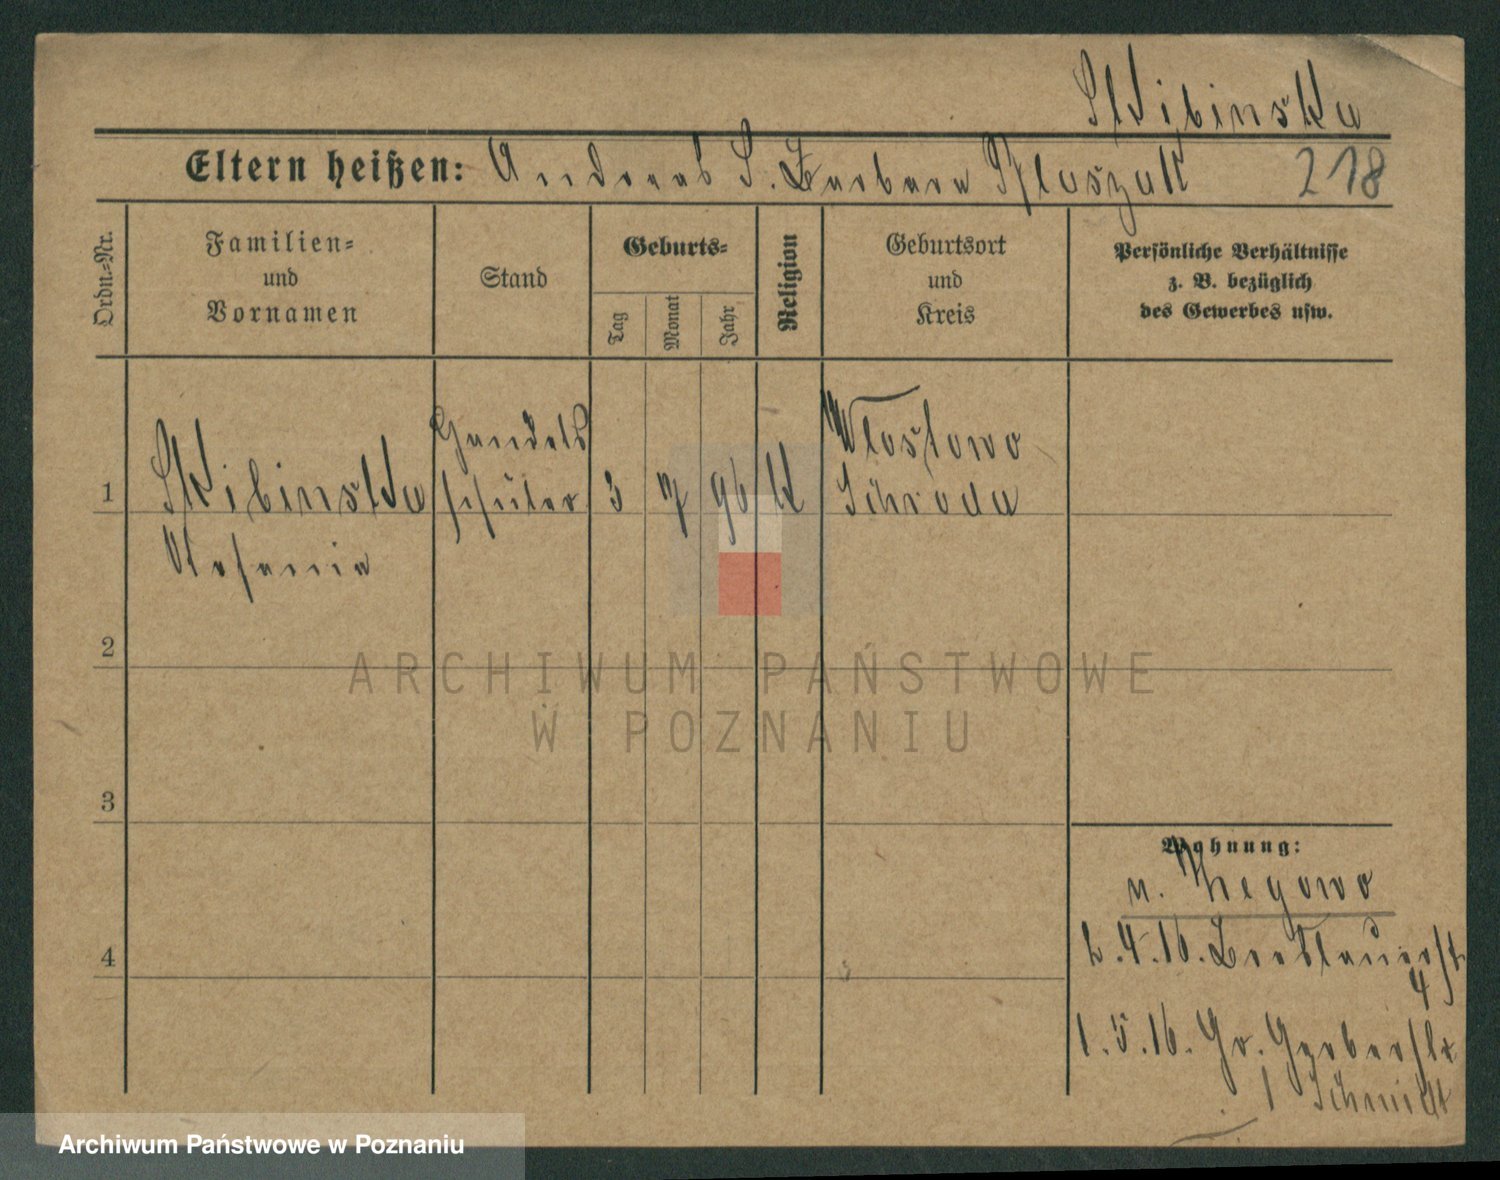 Skibinska
Eltern heißen: Andreas S. Barbara Ploszak 218
Ordn.=Nr.
Familien=
und
Vornamen
Stand
Geburts=
Tag
Monat
Jahr
Religion
Geburtsort
und
Kreis
Persönliche Verhältnisse
z. B. bezüglich
des Gewerbes usw.
Handels
Wlostowo
1 Skibinska schüler 3 7 96 K Schroda
Stefania
2
3
4
ARCHIWUM PAŃSTWOWE
W POZNANIU
Wohnung:
n.
2.4.16. Breslauerst
4
1.5.16. Gr. Gerberstr
1 Schmidt
Archiwum Państwowe w Poznaniu